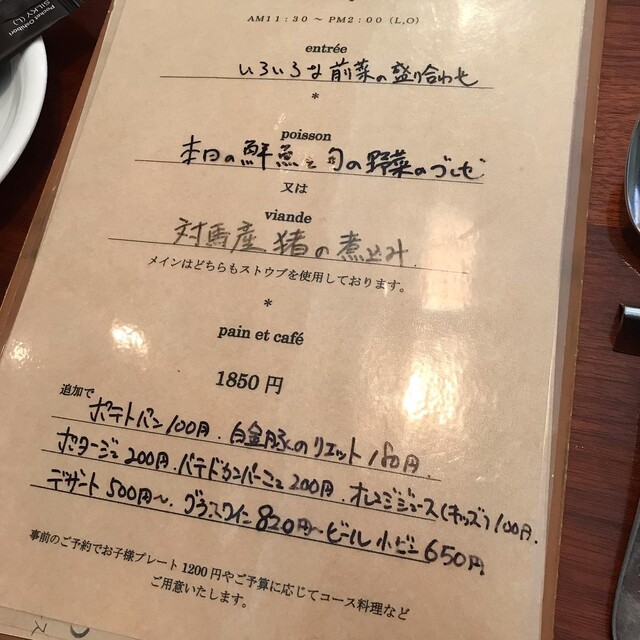 Pocket Oshibori
SILKY (L)
AM11：30 ～ PM2：00（L,O）
entrée
いろいろな前菜の盛り合わせ
*
poisson
本日の鮮魚と旬の野菜のブレゼ
又は
viande
対馬産 猪の煮込み.
メインはどちらもストウブを使用しております。
*
pain et café
1850 円
追加で
ポテトパン100円. 白金豚のリエット180円.
ポタージュ200円. パテドカンパーニュ200円. オレンジジュース(キッズ)100円.
デザート500円〜. グラスワイン820円〜ビール小ビン650円
事前のご予約でお子様プレート1200円やご予算に応じてコース料理など
ご用意いたします。
ス